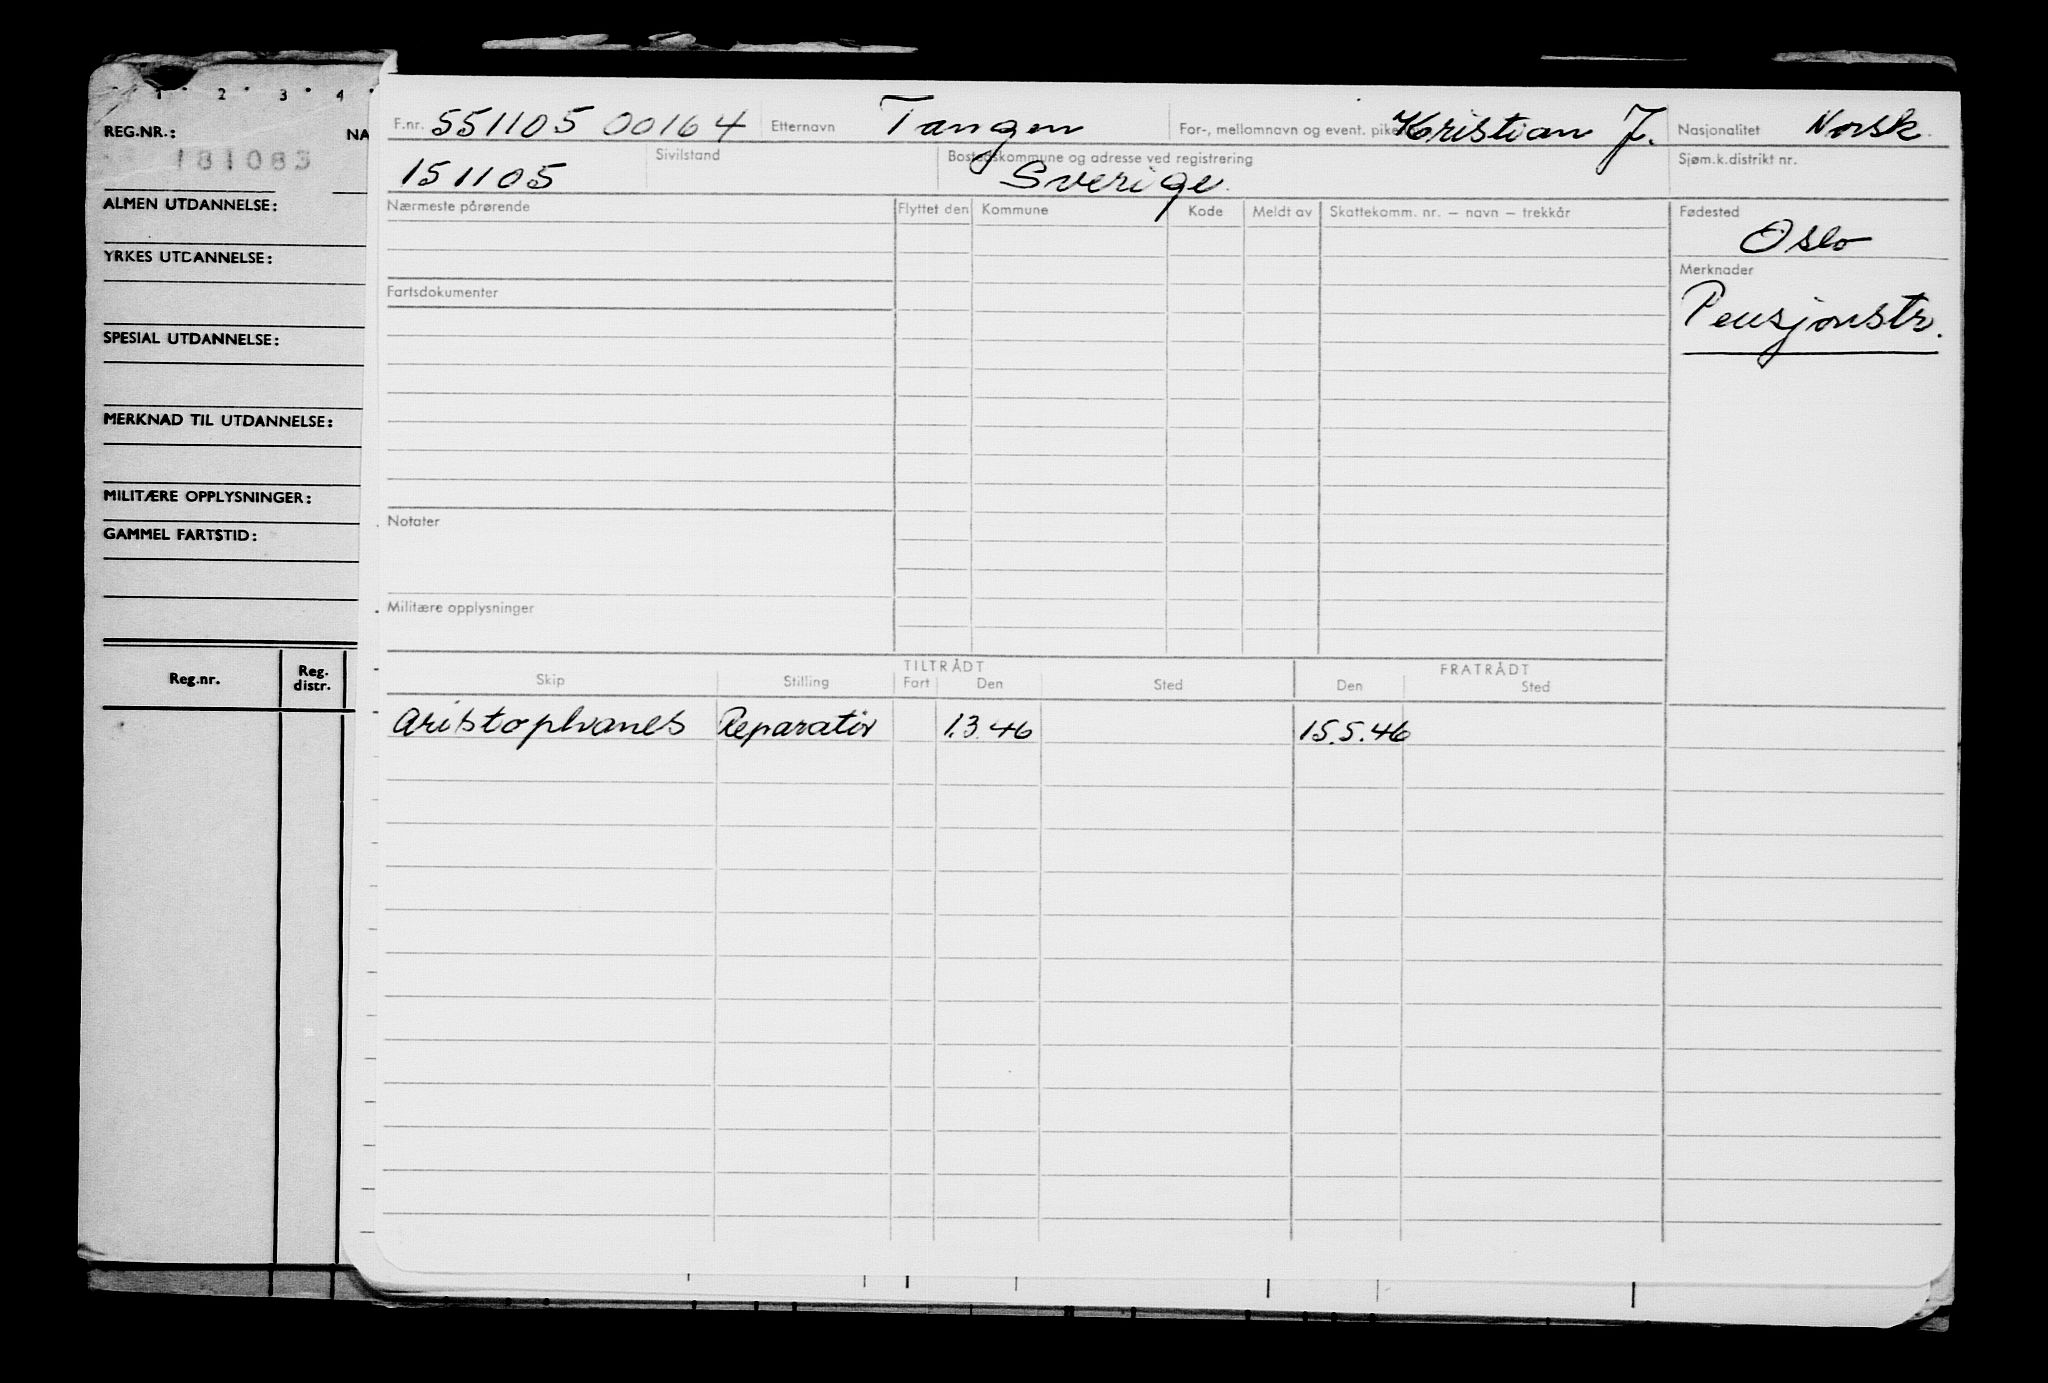 1 2 3 4
REG.NR.: NA
181083
ALMEN UTDANNELSE:
YRKES UTDANNELSE:
SPESIAL UTDANNELSE:
MERKNAD TIL UTDANNELSE:
MILITÆRE OPPLYSNINGER:
GAMMEL FARTSTID:
Reg.nr. Reg. distr.
F.nr. 551105 00164 Etternavn Tangen For-, mellomnavn og event. pike Kristian J. Nasjonalitet Norsk
151105 Sivilstand Bostedskommune og adresse ved registrering Sverige. Sjøm.k.distrikt nr.
Nærmeste pårørende Flyttet den Kommune Kode Meldt av Skattekomm. nr. – navn – trekkår Fødested
Oslo
Merknader
Fartsdokumenter
Pensjonstr.
Notater
Militære opplysninger
TILTRÅDT FRATRÅDT
Skip Stilling Fart Den Sted Den Sted
Aristophanes Reparatör 1.3.46 15.5.46